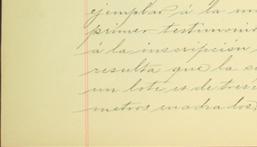 ejemplar á la m
primer testimonio
á la inscripción
resulta que la s
un lote es de tresc
metros cuadrados,